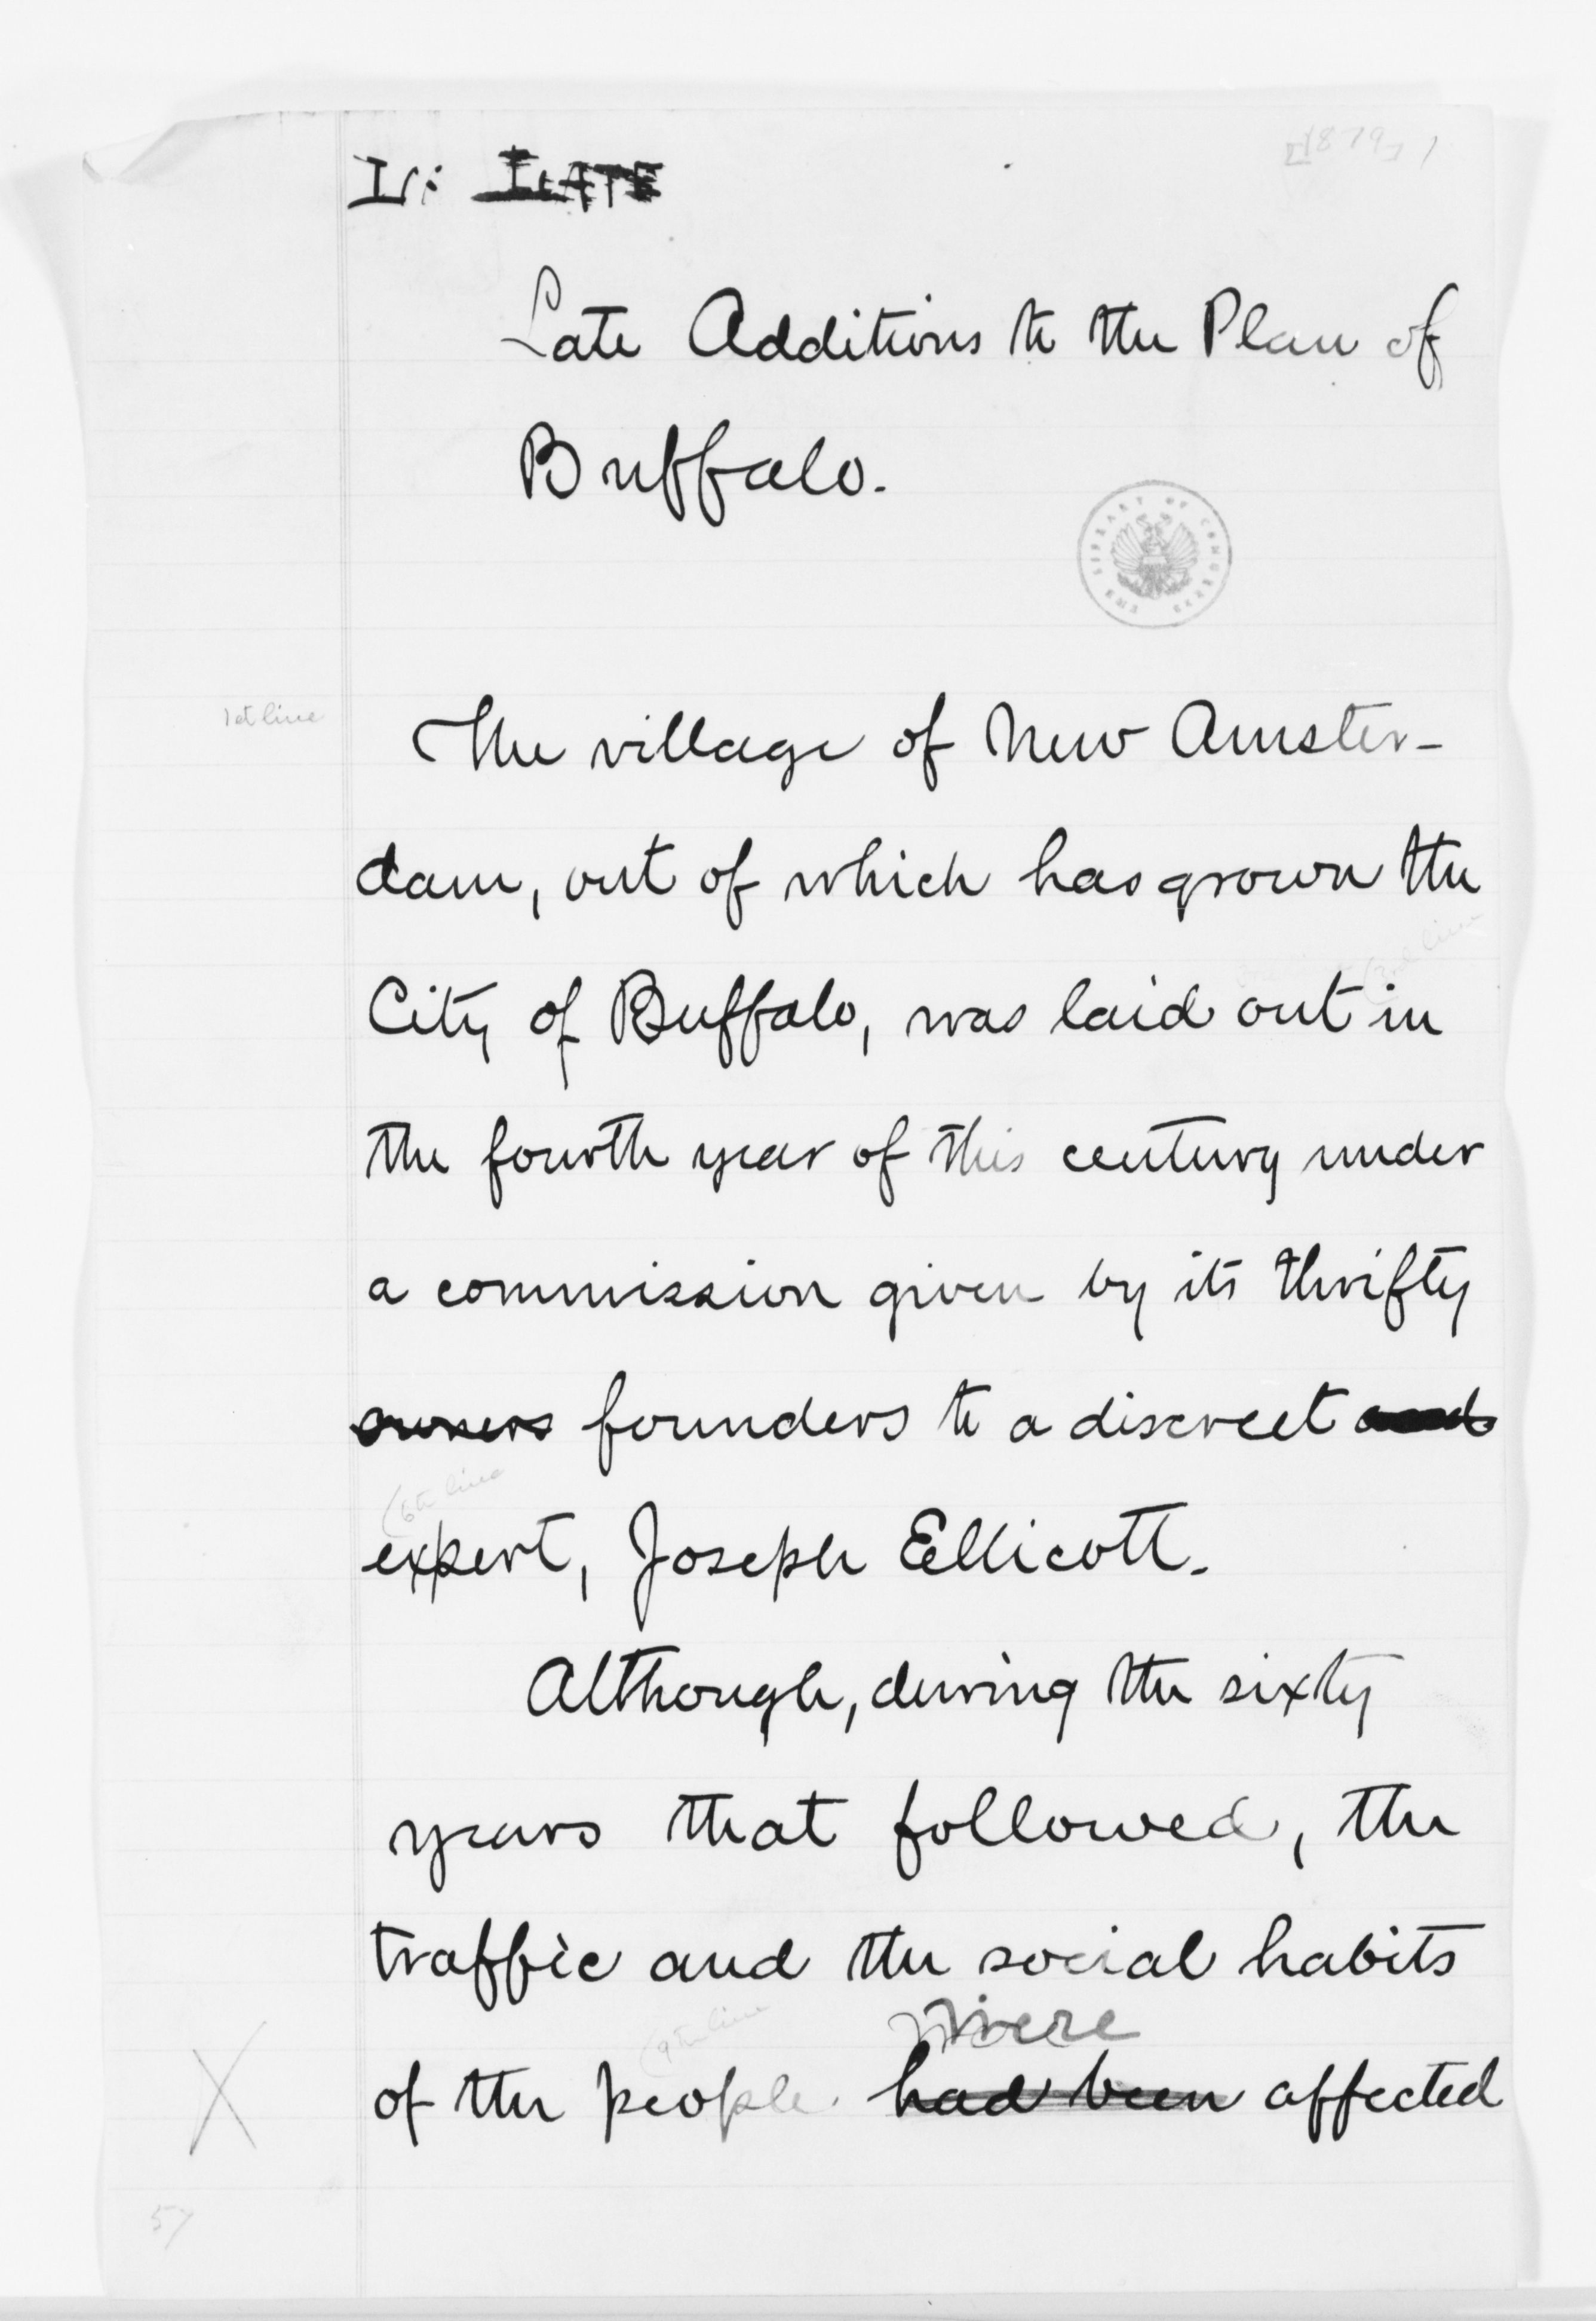 [1879] 1
L: LATE
Late Additions to the Plan of
Buffalo.
THE LIBRARY OF CONGRESS
1st line
The village of New Amster-
dam, out of which has grown the
City of Buffalo, was laid out in
the fourth year of this century under
a commission given by its thrifty
owners founders to a discreet and
(6th line
expert, Joseph Ellicott.
Although, during the sixty
years that followed, the
traffic and the social habits
were
(9th line
of the people had been affected
X
57